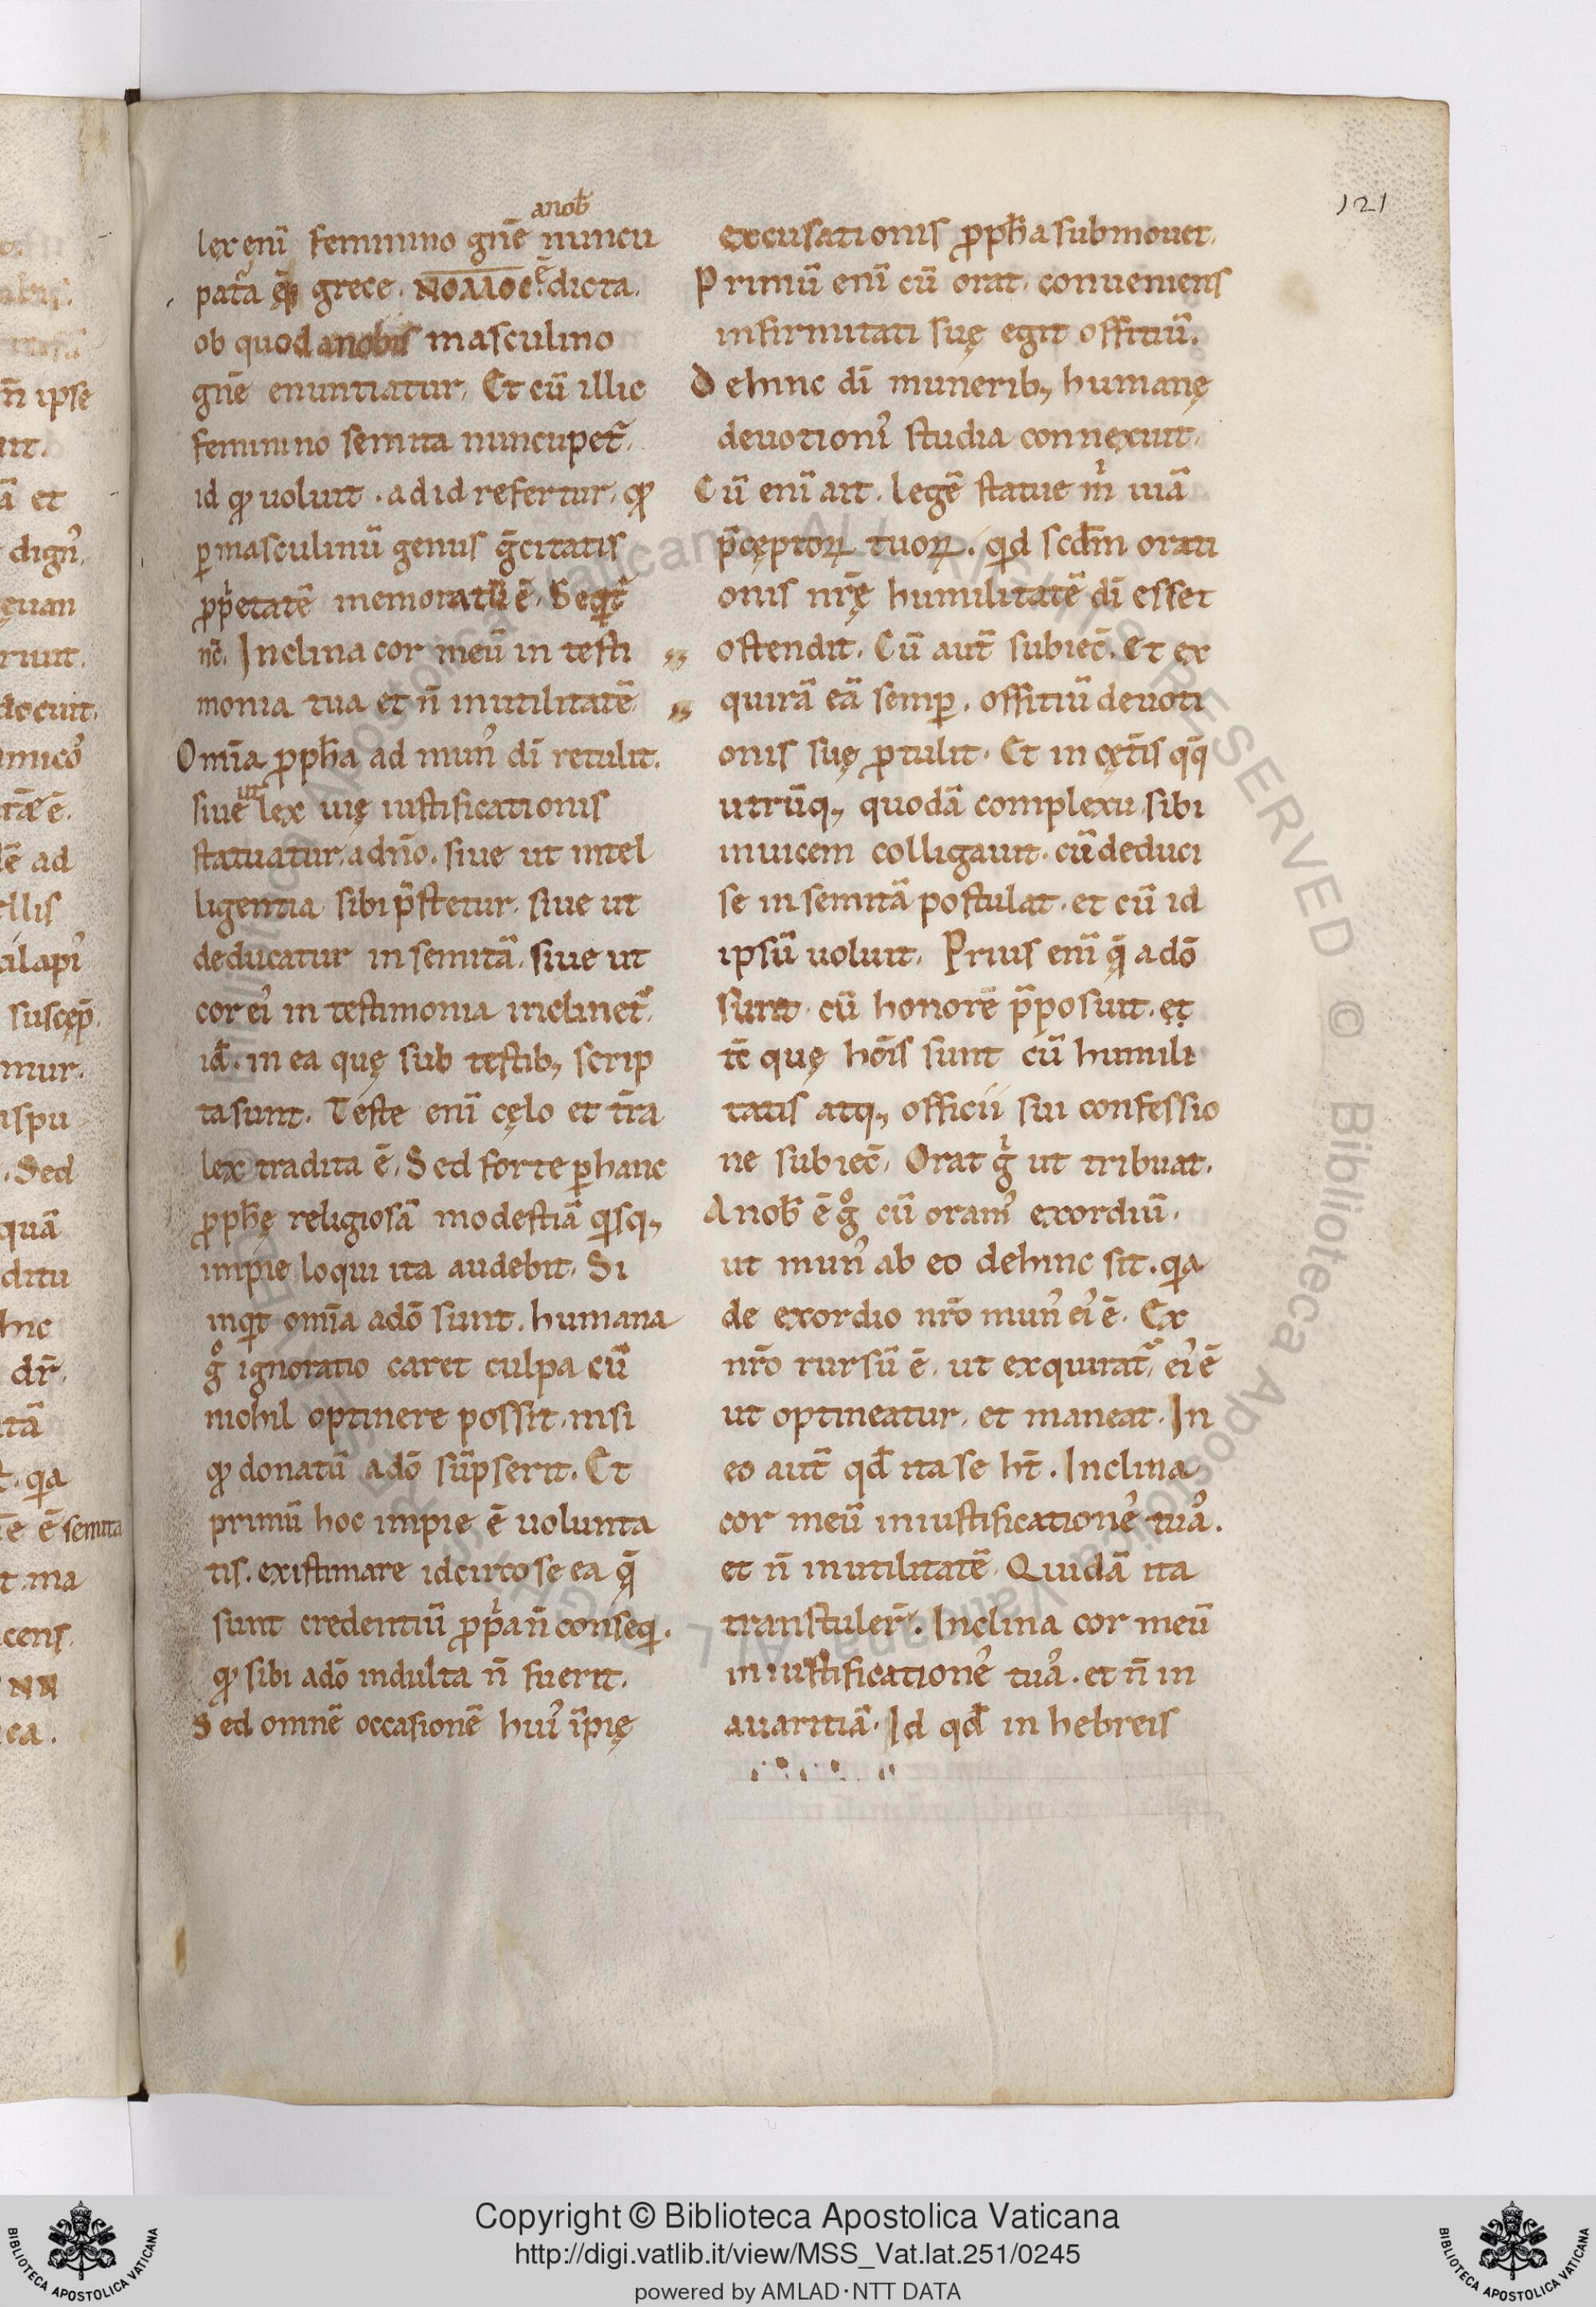 121
anob̄
lex enī feminino gn̄e nuncu
pat̄a q̨̄ grece. ΝΟΜΟC ē. dicta.
ob quod anobis masculino
gn̄e enuntiatur. Et cū illic
feminino semita nuncupet᷑.
id qͥ uoluit. ad id refertur. qͥ
ꝑ masculinū genus ḡcitatis
ꝓpͥetatē memoratū ē. Seqͥt᷑
nc̄. Inclina cor meū in testi
monia tua et n̄ inutilitatē.
Om̄ia ꝓph̄a ad munꝰ dī retulit.
siue ut lex uię iustificationis
statuatur. a dn̄o. siue ut intel
ligentia sibi p̄stetur. siue ut
deducatur in semitā. siue ut
cor eiꝰ in testimonia inclinet᷑.
id̄. in ea quę sub testib; scrip
ta sunt. Teste enī cęlo et t̄ra
lex tradita ē. Sed forte ꝑ hanc
ꝓph̄ę religiosā modestiā qͥsq;
impie loqui ita audebit. Si
inqͥt om̄ia a dō sunt. humana
gͦ ignoratio caret culpa cū
nichil optinere possit. nisi
qͥ donatū a dō sūpserit. Et
primū hoc impie ē uolunta
tis. existimare idcirco se ea q̄
sunt credentiū ꝓpͥa n̄ conseqͥ.
qͥ sibi a dō indulta n̄ fuerit.
Sed omnē occasionē huiꝰ īpię
excusationis ꝓph̄a submouet.
Primū enī cū orat. conueniens
infirmitati suę egit offitiū.
Dehinc dī munerib; humanę
deuotionꝰ studia connexuit.
Cū enī ait. legē statue mͥ uiā
p̄cęptoꝝ tuoꝝ. qͥd scdm̄ orati
onis nr̄ę humilitatē dī esset
ostendit. Cū aut̄ subiec̄. Et ex
quirā eā semꝑ. offitiū deuoti
onis suę ꝓtulit. Et in cęt̄is qͦq̄
utrūq; quodā complexu sibi
inuicem colligauit. cū deduci
se in semitā postulat. et cū id
ipsū uoluit. Prius enī q̄ a dō
sunt. cū honorē p̄posuit. et
tē quę hōis sunt cū humili
tatis atq; officii sui confessio
ne subiec̄. Orat gͥ ut tribuat.
A nob̄ ē gͦ cū oramꝰ exordiū.
ut munꝰ ab eo dehinc sit. qͥa
de exordio nr̄o munꝰ eiꝰ ē. Ex
nr̄o rursū ē. ut exquirat᷑. eiꝰ ē
ut optineatur. et maneat. In
eo aut̄ qd̄ ita se ht̄. Inclina
cor meū in iustificationeꝰ tuaꝰ.
et n̄ inutilitatē. Quidā ita
transtuler̄. Inclina cor meū
in iustificationeꝰ tuaꝰ. et n̄ in
auaritiā. Id qd̄ in hebreis
n̄ ipse
ā et
dignꝰ.
ęuan
docuit.
ē ad
illis
suscęp̄.
mur.
ispu
. Sed
quā
ditu
hic
dr̄.
tā
. qͥa
ē semita
t. ma
cens.
ea.
Copyright © Biblioteca Apostolica Vaticana
http://digi.vatlib.it/view/MSS_Vat.lat.251/0245
powered by AMLAD·NTT DATA
BIBLIOTECA APOSTOLICA VATICANA
BIBLIOTECA APOSTOLICA VATICANA